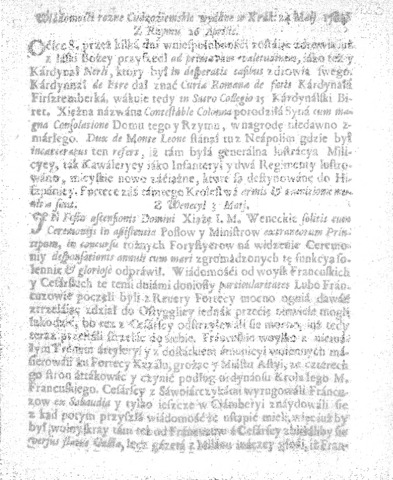 Wiadomości rożne Cudzoźiemskie wydane w Krák: 24 Maij
Z Rzymu 26 Aprilis.
Oćiec S. przez kilká dni w niesposobnośći zostáiąc zdrowia iuż
z łáski Bożey przyszedł ad primævam valetudinem, iáko też y
Kárdynał Nerli, ktory był in desperatis casibus zdrowia swego.
Kárdynał de Etre dał znáć Curia Romana de fatis Kárdynáłá
Firsztemberká, wákuie tedy in Sacro Collegio 15 Kárdynálski Bi-
ret. Xiężna názwána Contestable Colonna porodziłá Syná cum ma-
gna Consolatione Domu tego y Rzymu, w nagrodę niedawno z-
márłego. Dux de Monte Leone stánął tuż Neápolim gdzie był
incarceratus ten refert, iż tám byłá generalna lustrácya Mili-
cyey, ták Káwáleryey iáko Infánteryi y dwá Regimenty
wáno, nowe záćiężne, ktore są destynowáne do Hi-
szpániey. Fortece záś támtego Krolestwá armis & munitione
Z Wenecyi 3 Maij.
In Festo ascensionis Domini Xiążę I. M. Weneckie solitis cum
Ceremonijs in assistentia Posłow y Ministrow extraneorum Prin-
cipum, in concursu rożnych Forysztyerow na widzenie Ceremo-
niy desponsationis annuli cum mari zgromádzonych tę funkcyą so-
lennie & gloriosè odpráwił. Wiádomośći od woysk Fráncuskich
y Cesárskich te temi dniámi doniosły particularitates Lubo Frán-
cuzowie poczęli byli z Revery Fortecy mocno ogniá dáwáć
zstrzeláiąc zdział do Ostyggliey iednák przećię niewiele mogli
szkodźić, bo też z Cesárscy odstrzeliwáli się mocno, iuż tedy
teraz przestáli strzeláć do siebie. Fráncuskie woysko z niemá-
łym Trenem ártyleryi y z dostátkiem ámunicyi woienney má-
sierowáli ku Fortecy Kazálu, grożąc y Miástu Astyi, ze czterech
go stron áttákowáć y czynić podług ordynánsu Krolá Iego M.
Francuskiego. Cesárscy z Sáwoiárczykámi wyrugowáli Fráncu-
zow ex Sabaudia y tylko ieszcze w Ciámberyi znáydowáli się
z kąd potym przyszłá wiádomość że ustąpić mieli,
był wolny kray tám też od Fráncuzow á Cesárscy zbliżáliby się
versus Gallia, lecz gázetá z Milánu ináczey głośi, iż Fran-